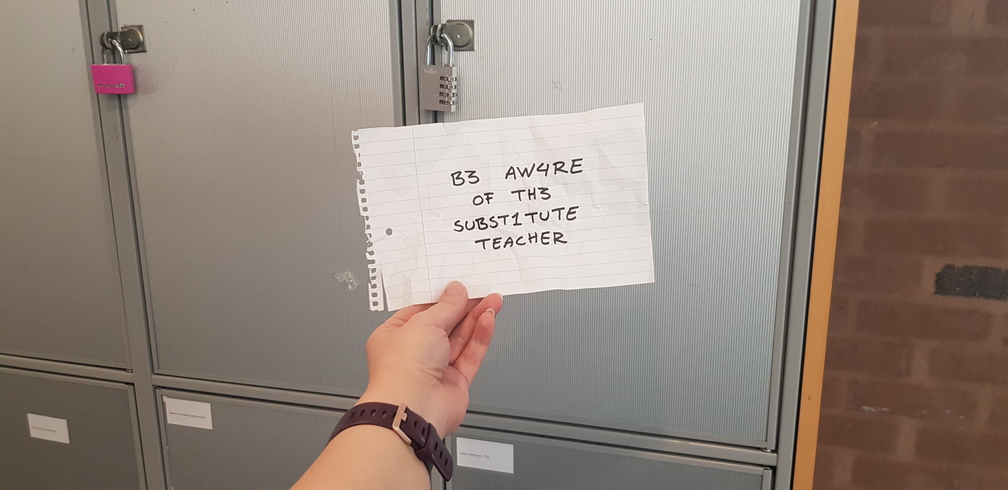 B3 AW4RE
OF TH3
SUBST1TUTE
TEACHER